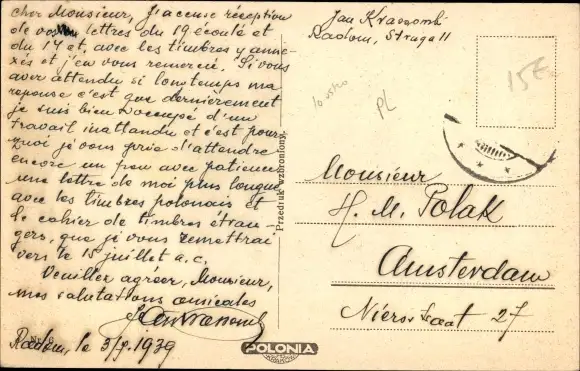 Cher Monsieur, J'accuse réception
de vos lettres du 19 écoulé et
du 1 et, avec les timbres y anne-
xés et j'en vous remercie. Si vous
aver attendu si longtemps ma
reponse c'est que dernièrement
je suis bien occupé d'un
travail inattandu et c'est pour-
quoi je vous prie d'attendre
encore un peu avec patience
une lettre de moi plus longue
avec les timbres polonais et
le cahier de timbres étran-
gers, que je vous remettrai
vers le 15 juillet a.c.
Veuillez agréer, Monsieur,
mes salutations amicales
Radom, le 3/7. 1939
Przedruk wzbroniony.
POLONIA
Jan
Radom, Struga 11
15E
PL
Monsieur
H. M. Polak
Amsterdam
27